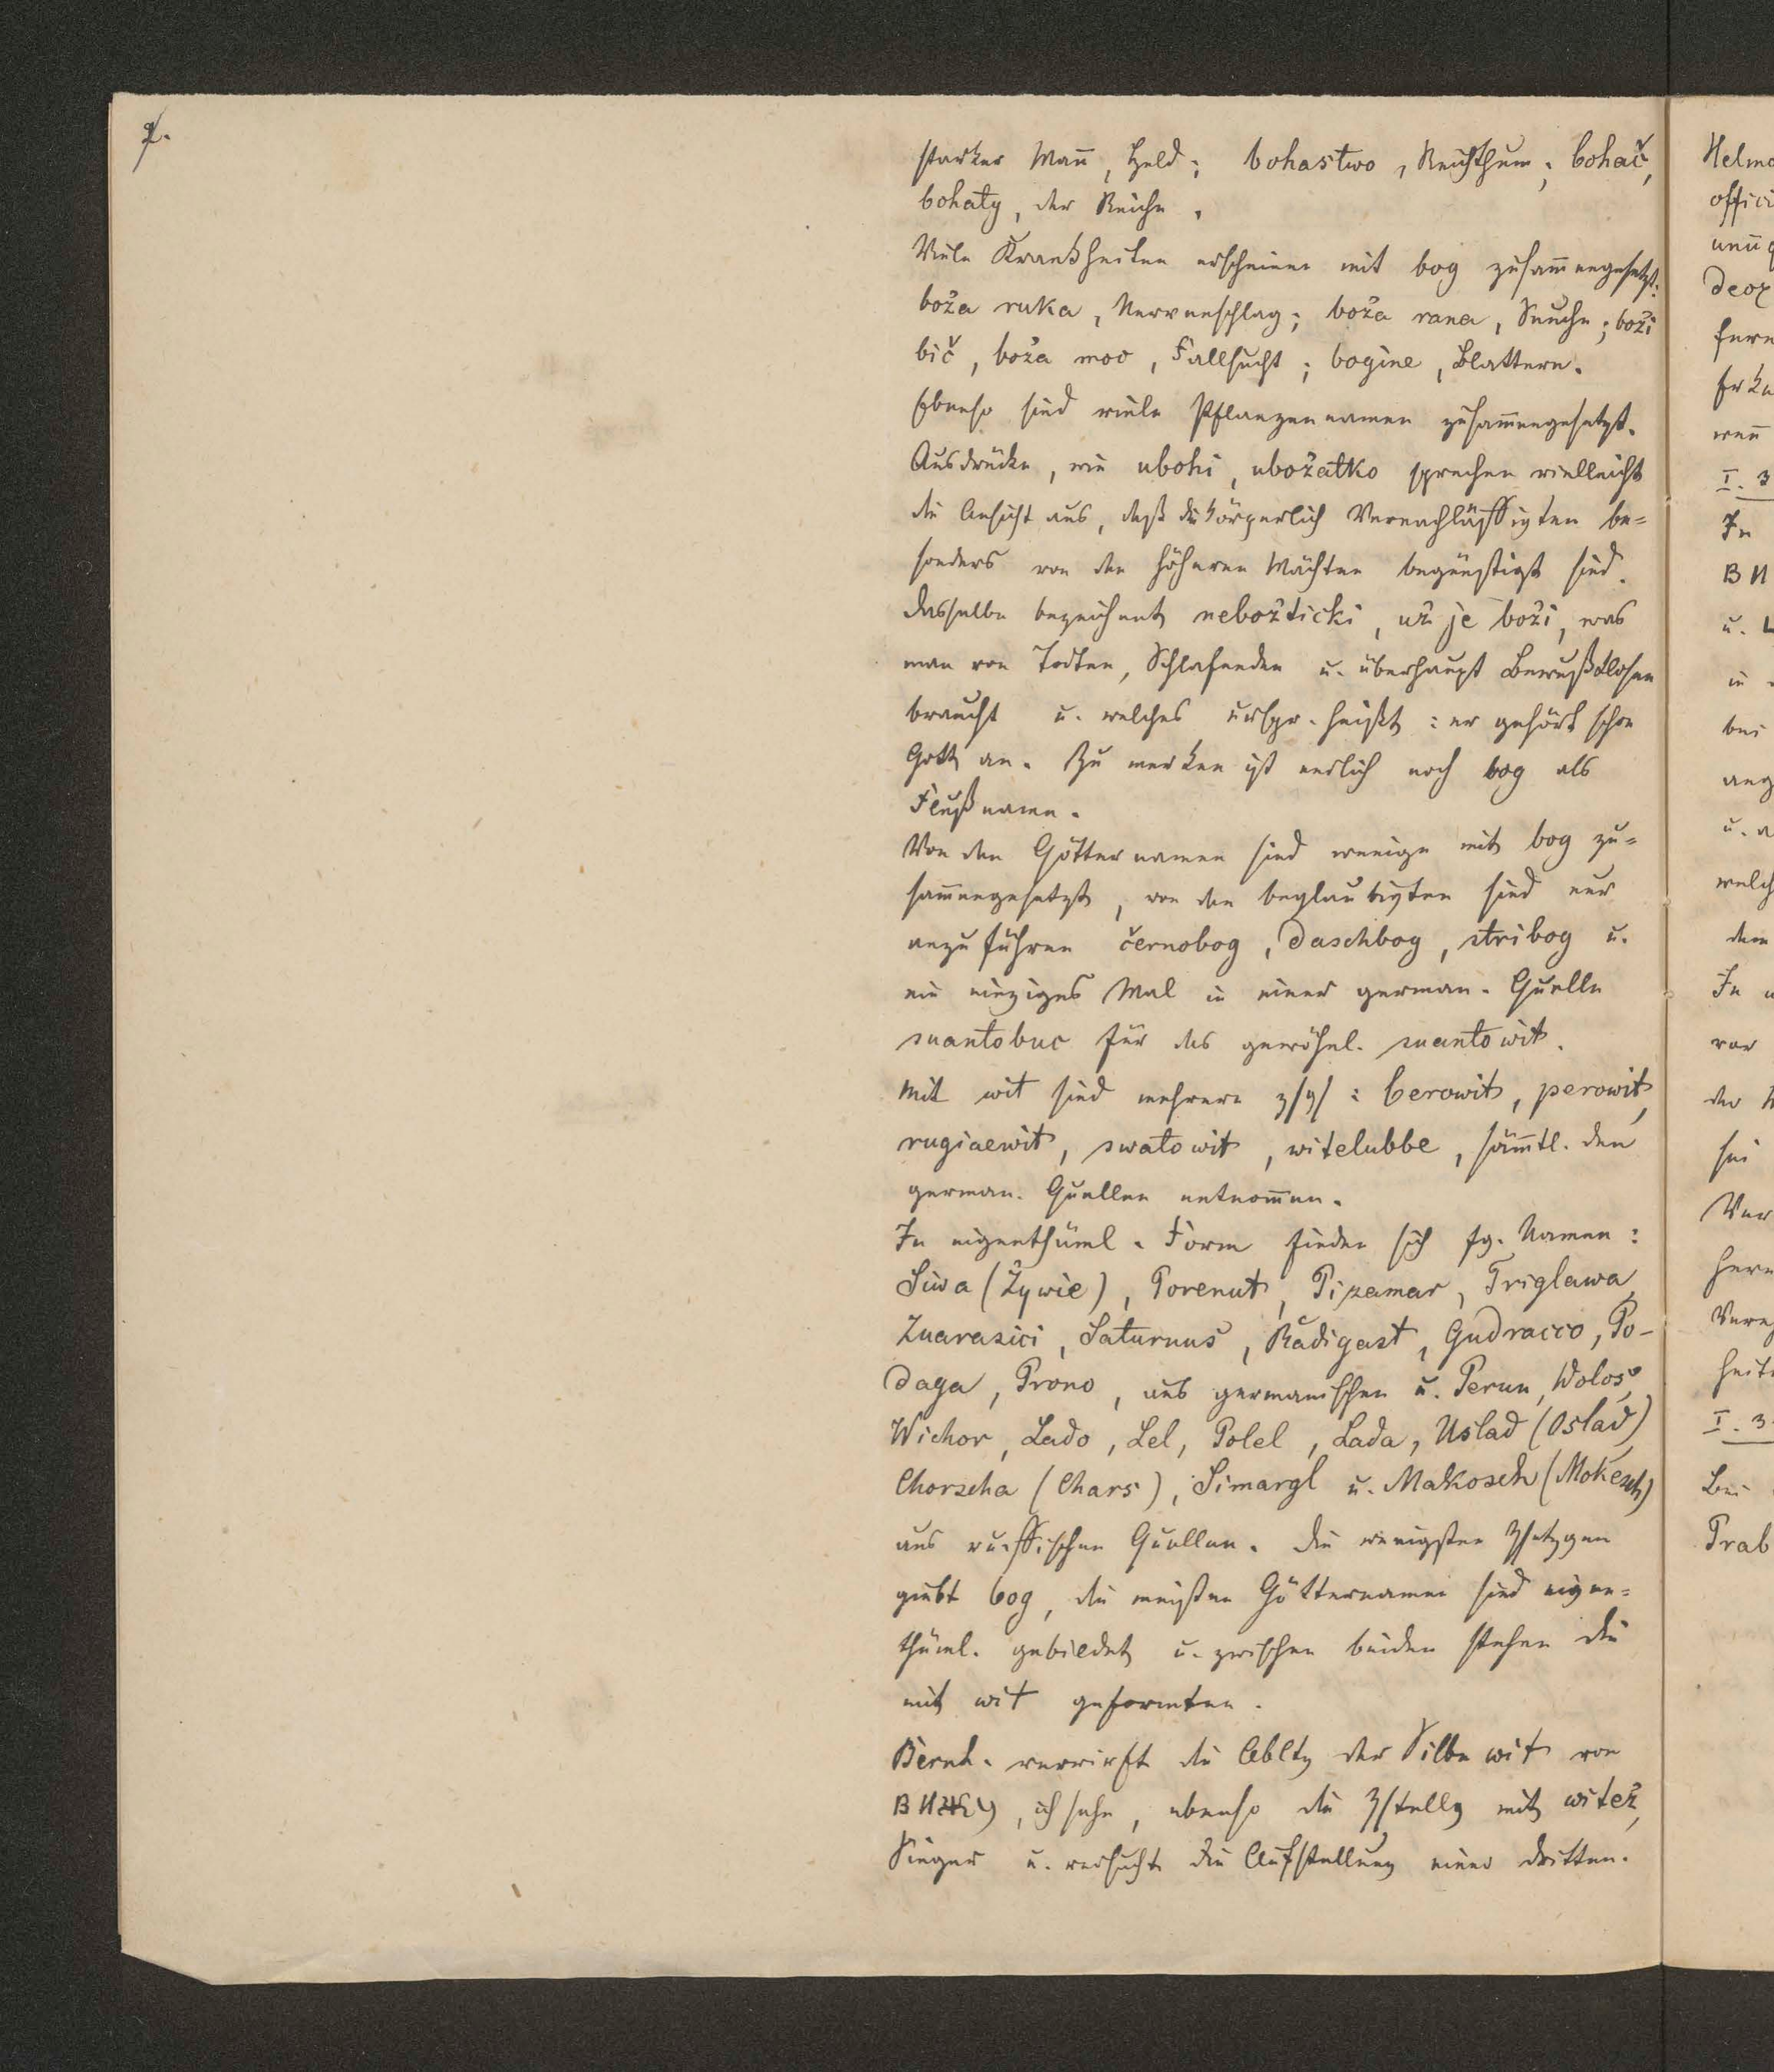 2.
starker Mañ, Held; bohastwo, Reichthum; bohač,
bohaty, der Reiche.
Viele Krankheiten erscheinen mit bog zusam̄engesetzt:
boža ruka, Nervenschlag; boža rana, Seuche; boži
bič, boža moc, Fallsucht; bogine, Blattern.
Ebenso sind viele Pflanzennamen zusam̄engesetzt.
Ausdrücke, wie ubohi, ubožatko sprechen vielleicht
die Ansicht aus, daß die körperlich Vernachlässigten be=
sonders von den höheren Mächten begünstigt sind.
Dasselbe bezeichnet nebožticki, už je boži, was
man von Todten, Schlafenden u. überhaupt Bewußtlosen
braucht u. welches urspr. heißt: er gehört schon
Gott an. Zu merken ist endlich noch bog als
Flußname.
Von den Götternamen sind wenige mit bog zu=
sam̄engesetzt, von den beglaubigten sind nur
anzuführen černobog, Daschbog, stribog u.
ein einziges Mal in einer german. Quelle
suantobuc für das gewöhnl. suantowit.
Mit wit sind mehrere zsgs: berowit, perowit,
rugiaewit, swatowit, witelubbe, säm̄tl. den
german. Quellen entnom̄en.
In eigenthüml. Form finden sich fg. Namen:
Siwa (Žywie), Porenut, Pizamar, Triglawa,
Zuarasici, Saturnus, Radigast, Gudracco, Po-
daga, Prono, aus germanischen u. Perun, Wolos,
Wichor, Lado, Lel, Polel, Lada, Uslad (Oslad)
Chorscha (Chars), Simargl u. Makosch (Mokesch)
aus russischen Quellen. Die wenigsten Zsetzgen
giebt bog, die meisten Götternamen sind eigen=
thüml. gebildet u. zwischen beiden stehen die
mit wit geformten.
Bernh. verwirft die Abltg der Silbe wit von
ich sehe, ebenso die Zstellg mit witež,
Sieger u. versucht die Aufstellung einer dritten.
offici
I. 3
In
u.
in
bei
u. a
welch
dem
In
vor
der
sei
I. 3
Bei
Prab